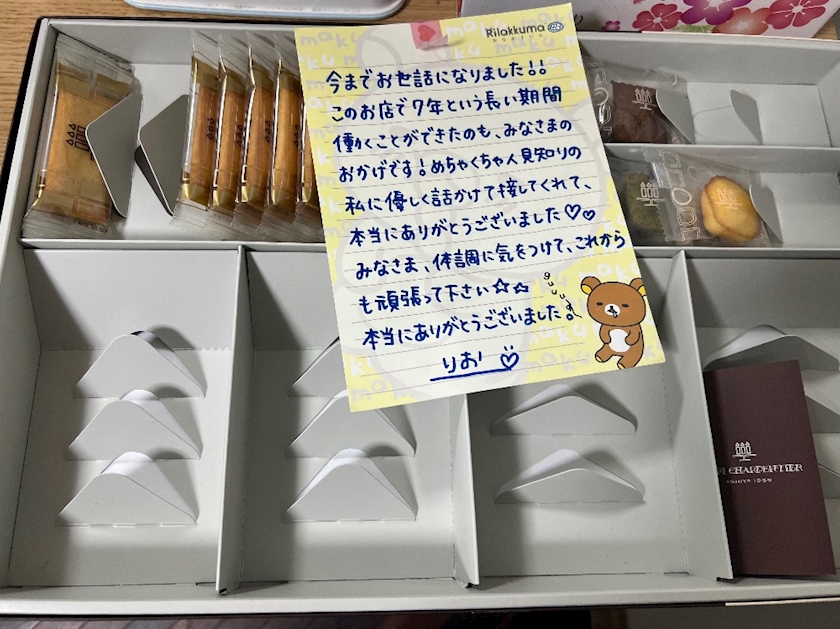 Rilakkuma
今までお世話になりました!!
このお店で7年という長い期間
働くことができたのも、みなさまの
おかげです!めちゃくちゃ人見知りの
私に優しく話かけて接してくれて、
本当にありがとうございました♡♡
みなさま、体調に気をつけて、これから
も頑張って下さい☆☆
本当にありがとうございました。
りお!♡
guuu
RI CHARPENTIER
ASHIYA 1969